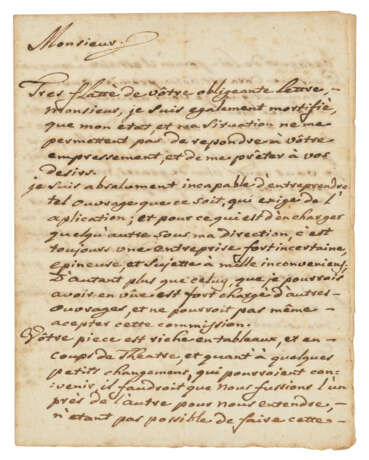 Monsieur.
Tres flatté de vôtre obligeante lettre,
monsieur, je suis egalement mortifié,
que mon état et ma situation ne me
permettent pas de repondre à vôtre
empressement, et de me prêter à vos
desirs.
je suis absalument incapable d'entreprendre
tel ouvrage que ce soit, qui exige de l'
aplication; et pour ce qui est d'en charger
quelqu'autre sous ma direction, c'est
toujours une entreprise fort incertaine,
epineuse, et sujette à mille inconveniens.
D'autant plus que celuy, que je pourrois
avoir en vüe est fort chargé d'autres
ouvrages, et ne pourroit pas même
acepter cette commission.
Vôtre piece est riche en tableaux, et en
coups de Théatre, et quant à quelques
petits changemens, qui pourroient con:
venir, il faudroit que nous fussions l'un
près de l'autre pour nous entendre,
n'etant pas possible de faire cette